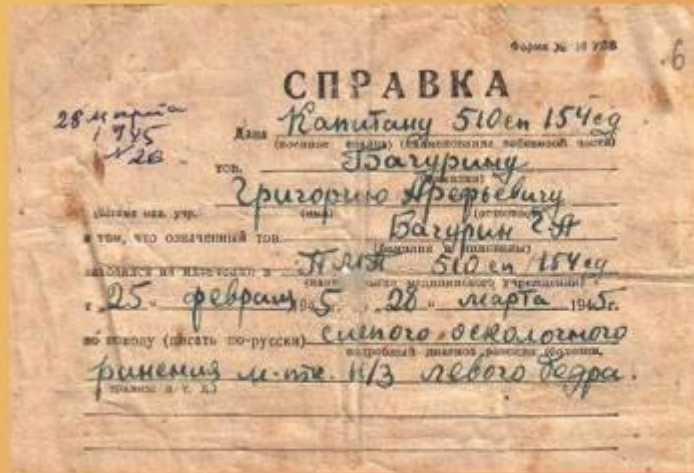 Форма № 16 УВВ
6
СПРАВКА
28 марта
1945
№ 26
Дана Капитану 510 сп 154 сд
(военное звание) (наименование войсковой части)
тов. Багурину
(фамилия)
Григорию Арефьевичу
(Штамп мед. учр.) (имя) (отчество)
в том, что означенный тов. Багурин Г А
(фамилия и инициалы)
находился на излечении в ПМП 510 сп 154 сд
медицинского учреждения)
с "25" февраля 1945 "28" марта 1945 г.
по поводу (писать по-русски) слепого осколочного
подробный диагноз ранения, болезни,
ранения м-тк. н/3 левого бедра.
травмы и т. д.)